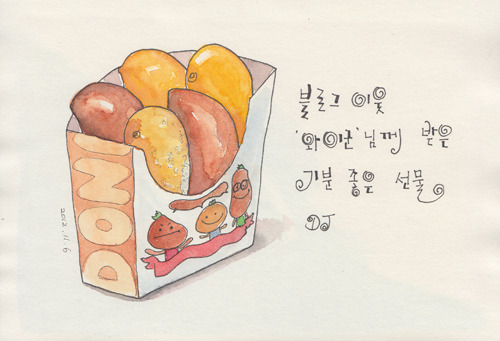 블로그 이웃
'와이군'님께 받은
기분 좋은 선물
DJ
DONI
2012. 11. 6